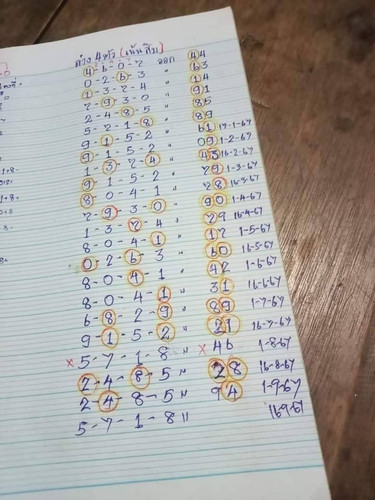 ล่าง 4 ตัว (เน้นสิบ)
4-6-0-7 ออก 44
0-2-6-3 " 63
1-3-7-4 " 14
7-9-3-0 " 91
2-4-8-5 " 85
5-7-1-8 " 89
9-1-5-2 " 61 17-1-67
9-1-5-2 " 09 1-2-67
1-3-7-4 " 43 16-2-67
9-1-5-2 " 79 1-3-67
8-0-4-1 " 78 16-3-67
7-9-3-0 " 90 1-4-67
1-3-7-4 " 79 16-4-67
8-0-4-1 " 17 1-5-67
0-2-6-3 " 60 16-5-67
8-0-4-1 " 42 1-6-67
8-0-4-1 " 31 16-6-67
6-8-2-9 " 89 1-7-67
9-1-5-2 " 21 16-7-67
× 5-7-1-8 " × 46 1-8-67
2-4-8-5 " 28 16-8-67
2-4-8-5 " 94 1-9-67
5-7-1-8 " 16-9-67